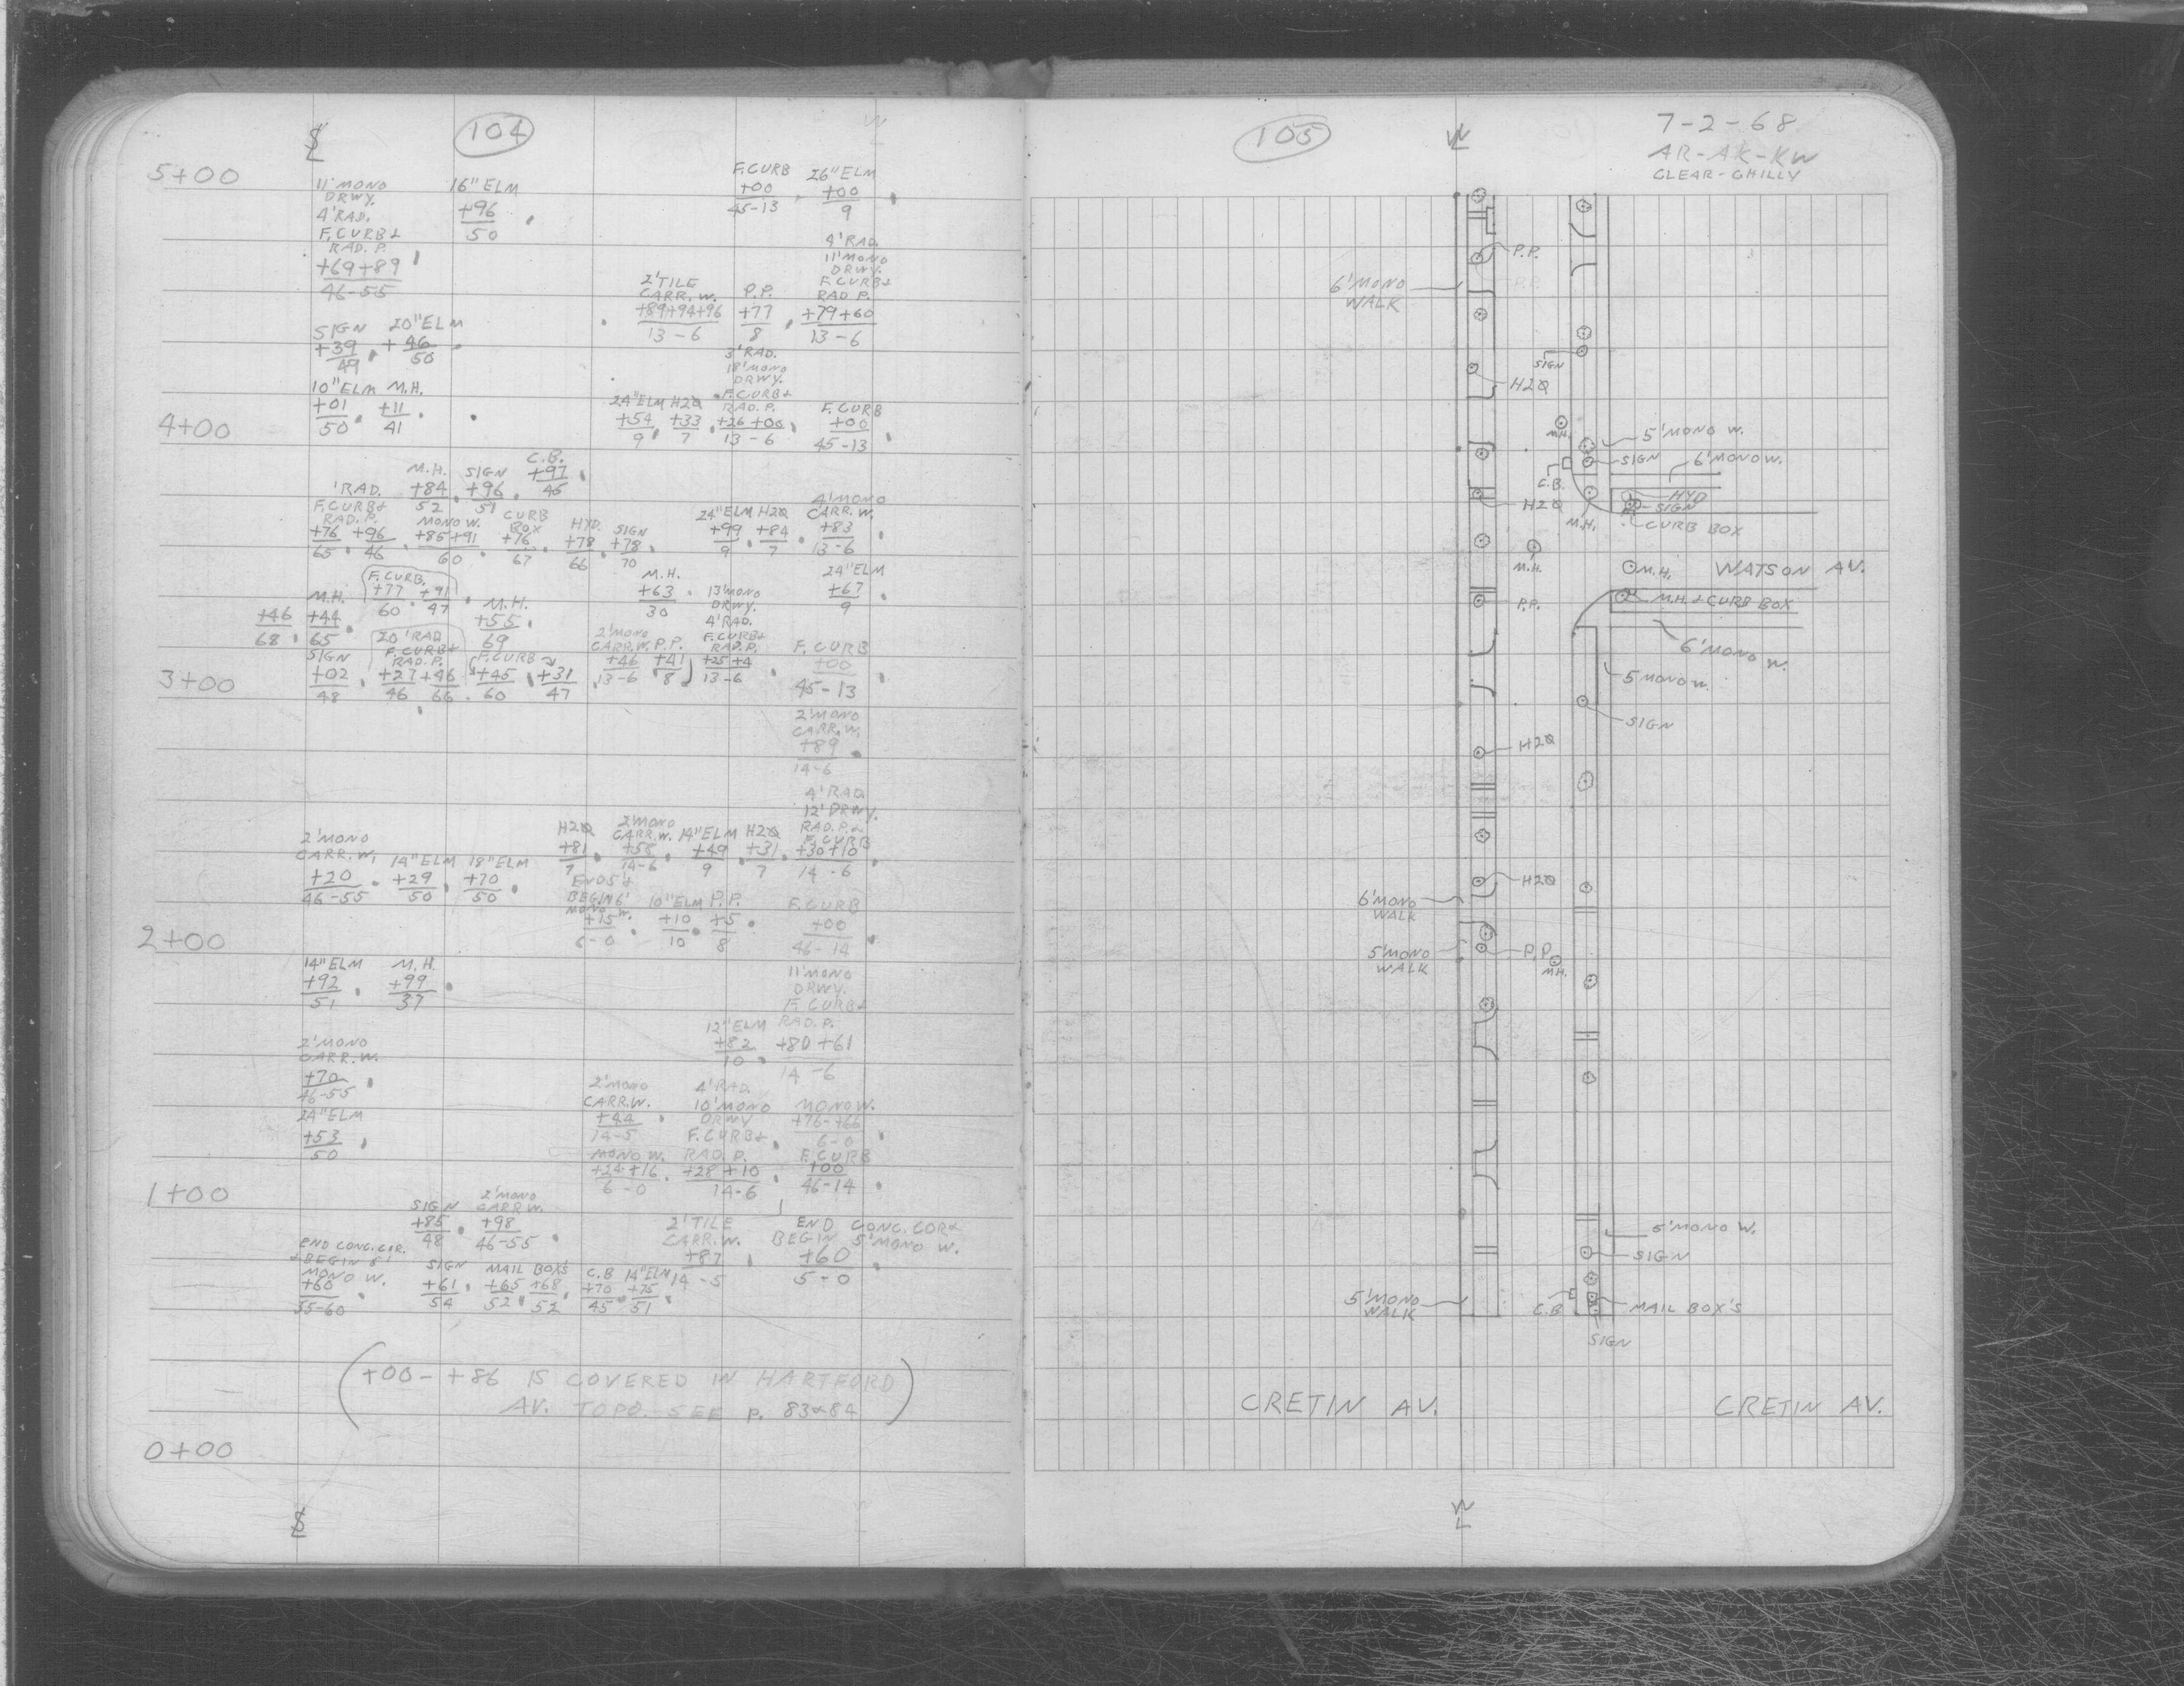 104
5+00
F.CURB 26"ELM
+00 +00
45-13 9
11'MONO 16"ELM
DRWY. +96
4'RAD. 50
F.CURB&
RAD. P.
+69+89
46-55
4'RAD.
11'MONO
DRWY.
2'TILE F.CURB&
CARR.W. P.P. RAD P.
+89+94+96 +77 +79+60
13-6 8 13-6
SIGN 20"ELM
+39 +46
49 50
3'RAD.
18'MONO
DRWY.
10"ELM M.H. 24"ELM H2O F.CURB& F.CURB
+01 +11 +54 +33 RAD.P. +00
50 41 9 7 +26+00 45-13
13-6
4+00
M.H. SIGN C.B.
+84 +96 +97
52 51 45
'RAD.
F.CURB& CURB 4'MONO
RAD.P. MONO W. BOX HYD. SIGN 24"ELM H2O CARR.W.
+76 +96 +85+91 +76 +78 +78 +99 +84 +83
65 46 60 67 66 70 9 7 13-6
F.CURB. M.H. 24"ELM
+77 +91 +63 +67
60 47 30 9
M.H. M.H. 13'MONO
+46 +44 +55 DRWY.
68 65 69 4'RAD.
SIGN 20'RAD F.CURB 2'MONO F.CURB& F.CURB
+02 F.CURB& +45 +31 CARR.W. P.P. RAD.P. +00
48 RAD.P. 60 47 +46 +41 +25+4 45-13
+27+46 13-6 8 13-6
46 66
3+00
2'MONO
CARR.W.
+89
14-6
4'RAD.
12'DRWY.
H2O 2'MONO 14"ELM H2O RAD.P.&
+81 CARR.W. +49 +31 F.CURB
7 +58 9 7 +30+10
14-6 14-6
2'MONO
CARR.W. 14"ELM 18"ELM
+20 +29 +70
46-55 50 50
ENDS &
BEGIN 6' 10"ELM P.P. F.CURB
MONO W. +10 +5 +00
+15 10 8 46-14
6-0
2+00
14"ELM M.H.
+92 +99
51 37
11'MONO
DRWY.
F.CURB&
12"ELM RAD.P.
+82 +80+61
10 14-6
2'MONO
CARR.W.
+70
46-55
2'MONO 4'RAD.
CARR.W. 10'MONO MONO W.
+44 DRWY +76-+66
14-5 F.CURB& 6-0
24"ELM
+53
50
MONO W. RAD.P. F.CURB
+24+16 +28+10 +00
6-0 14-6 46-14
1+00
SIGN 2'MONO
+85 CARR W.
48 +98
46-55
2'TILE END CONC.COR&
CARR.W. BEGIN 5'MONO W.
+87 +60
14-5 5-0
END CONC.COR.
& BEGIN 5' SIGN MAIL BOX'S C.B 14"ELM
MONO W. +61 +65 +68 +70 +75
+60 54 52 52 45 51
55-60
(+00-+86 IS COVERED IN HARTFORD
AV. TOPO. SEE p. 83&84)
0+00
105
7-2-68
AR-AK-KW
CLEAR-CHILLY
P.P.
6'MONO
WALK
SIGN
H2O
M.H.
5'MONO W.
SIGN
6'MONO W.
C.B.
HYD
SIGN
H2O
M.H.
CURB BOX
M.H.
M.H. WATSON AV.
P.P.
M.H.& CURB BOX
6'MONO W.
5 MONO W.
SIGN
H2O
H2O
6'MONO
WALK
5'MONO
WALK
P.P.
M.H.
5'MONO W.
SIGN
5'MONO
WALK
C.B
MAIL BOX'S
SIGN
CRETIN AV. CRETIN AV.